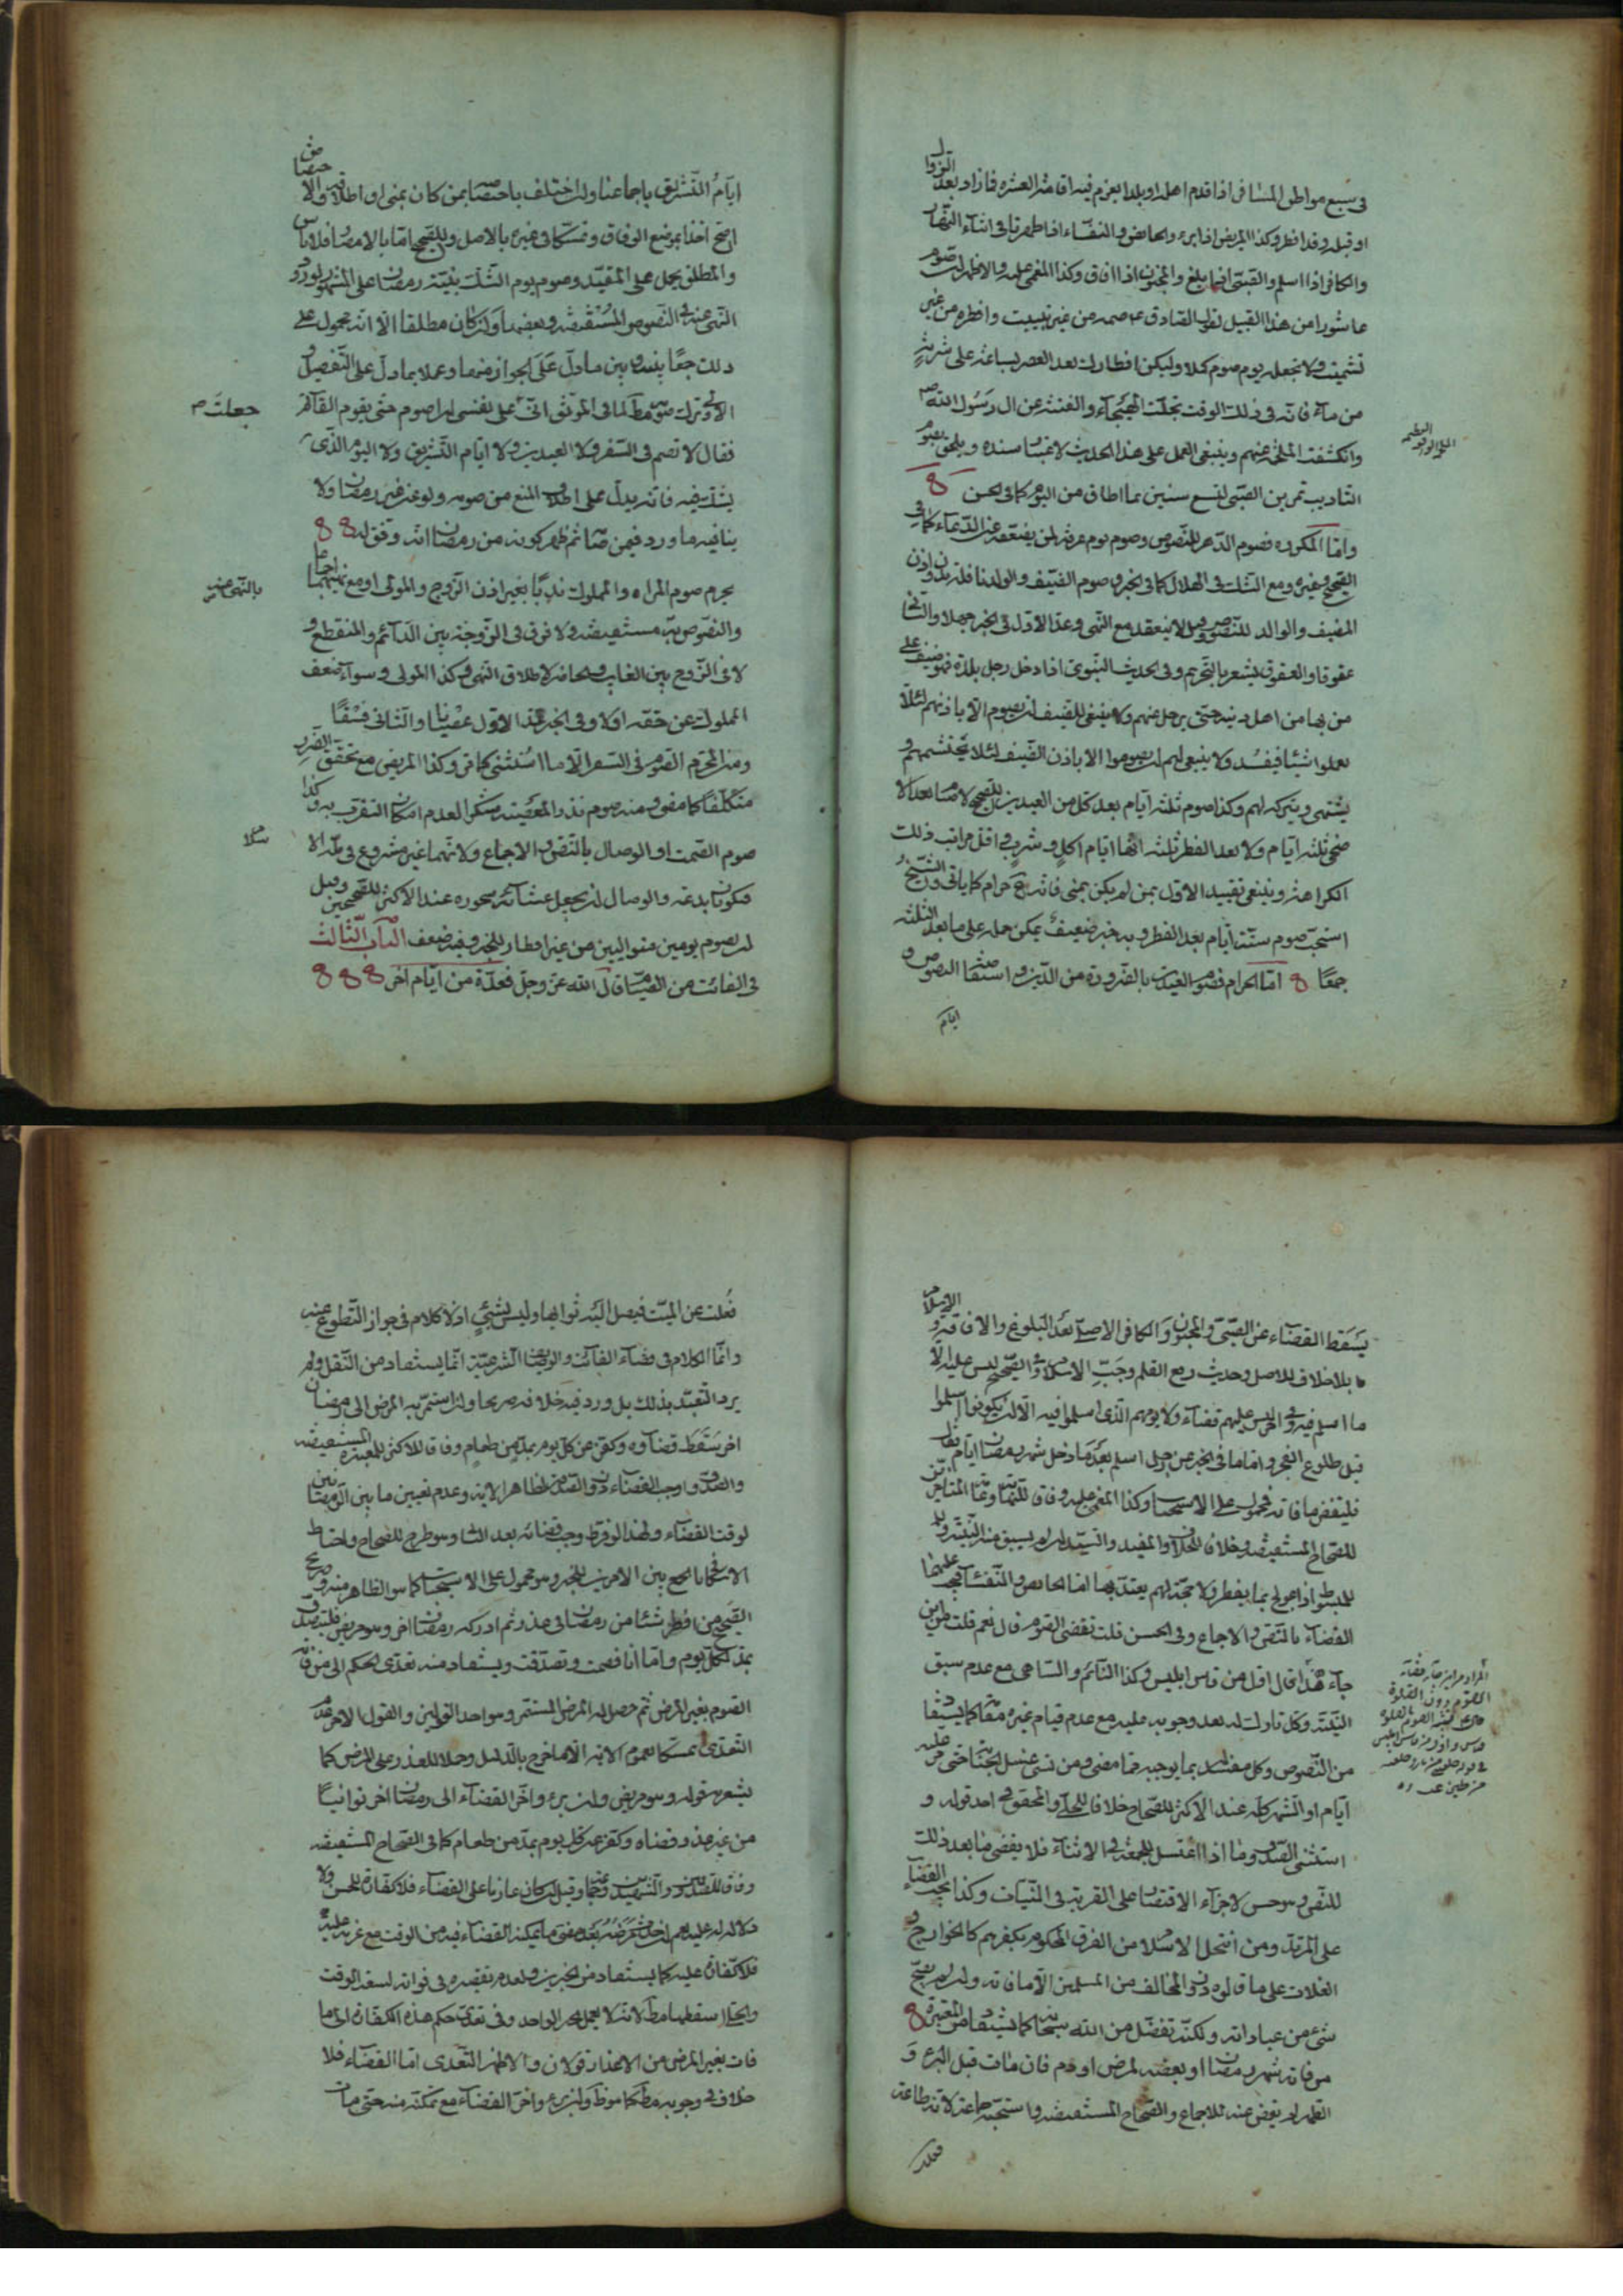 في سبع مواطن المسافر اذا قدم اهله او بلدا يعزم فيه اقامة العشرة فما زاد بعد الزوال
او قبله وقد افطر وكذا المريض اذا برء والحايض والنفساء اذا طهرتا في اثناء النهار
والكافر اذا اسلم والصبي اذا بلغ والمجنون اذا افاق وكذا المغمى عليه والاظهر ان صوم
عاشورا من هذا القبيل لقول الصادق ع صمه من غير تبييت وافطره من غير
تشميت ولا تجعله يوم صوم كملا وليكن افطارك بعد العصر بساعة على شربة
من ماء فانه في ذلك الوقت تجلت الهيجاء والفتنة عن ال رسول الله ص
وانكشفت الملحمة عنهم وينبغي العمل على هذا الحديث لاعتبار سنده ويلحق بصوم
التاديب تمرين الصبي لتسع سنين بما اطاق من اليوم كما في الحسن
واما المكروه فصوم الدهر للنصوص وصوم يوم عرفة لمن يضعفه عن الدعاء كما في
الصحيح وغيره ومع الشك في الهلال كما في الخبر وصوم الضيف والولد نافلة بدون اذن
المضيف والوالد للنصوص وقيل لا ينعقد مع النهي وعد الاول في الخبر جهلا والثاني
عقوقا والعقوق يشعر بالتحريم وفي الحديث النبوي اذا دخل رجل بلدة فهو ضيف على
من بها من اهل دينه حتى يرحل عنهم ولا ينبغي للضيف ان يصوم الا باذنهم لئلا
يعملوا شيئا فيفسد ولا ينبغي لهم ان يصوموا الا باذن الضيف لئلا يحتشمهم و
يشتهي ويتركه لهم وكذا صوم ثلثة ايام بعد كل من العيدين للصحيح لا صيام بعد الا
ضحى ثلثة ايام ولا بعد الفطر ثلثة انها ايام اكل وشرب واقل مراتب ذلك
الكراهة وينبغي تقييد الاول بمن لم يكن بمنى فانه ح حرام كما ياتي والشيخ
استحب صوم ستة ايام بعد الفطر وبه خبر ضعيف يمكن حمله على ما بعد الثلثة
جمعا اما الحرام فصوم العيدين بالضرورة من الدين واستفاضة النصوص و
ايام
ايام التشريق باجماعنا وان اختلف باختصاصه بمن كان بمنى او اطلاقه والا
اصح اخذا بموضع الوفاق وتمسكا في غيره بالاصل وللصحيح اما بالامصار فلا باس
والمطلق يحمل على المقيد وصوم يوم الشك بنية رمضان على المشهور لورود
النهي عنه في النصوص المستفيضة وبعضها وان كان مطلقا الا انه محمول على
ذلك جمعا بينه وبين ما دل على الجواز منها وعملا بما دل على التفصيل و
الاولى ترك صومه مطلقا لما في الموثق اني على نفسي ان اصوم حتى يقوم القائم
جعلت
فقال لا تصم في السفر ولا العيدين ولا ايام التشريق ولا اليوم الذي
يشك فيه فانه يدل على اطلاق المنع من صومه ولو عن غير رمضان ولا
ينافيه ما ورد فيمن صامه ثم ظهر كونه من رمضان انه وفق له
يحرم صوم المراه والمملوك ندبا بغير اذن الزوج والمولى او مع نهيهما اجماعا
والنصوص به مستفيضة ولا فرق في الزوجة بين الدائم والمنقطع و
لا في الزوج بين الغايب والحاضر لاطلاق النهي وكذا المولى وسواء ضعف
المملوك عن حقه اولا وفي الخبر عد الاول عصيانا والثاني فسقا
ومن المحرم الصوم في السفر الا ما استثني كما مر وكذا المريض مع تحقق الضرر
متكلفا كما مر ومنه صوم نذر المعصية شكرا لعدم امكان التقرب به وكذا
صوم الصمت او الوصال بالنص والاجماع ولانهما غير مشروع في ملة الا
سلام
فيكونان بدعة والوصال ان يجعل عشائه سحوره عند الاكثر للصحيحين وقيل
ان يصوم يومين متواليين من غير افطار للخبر وفيه ضعف الباب الثالث
في الفائت من الصيام قال الله عز وجل فعدة من ايام اخر
يسقط القضاء عن الصبي والمجنون والكافر الاصلي بعد البلوغ والافاقة والاسلام
بلا خلاف للاصل وحديث رفع القلم وجب الاسلام والصحيح ليس عليه الا
ما اسلم فيه وفي اخر ليس عليهم قضاء ولا يومهم الذي اسلموا فيه الا ان يكونوا اسلموا
قبل طلوع الفجر واما ما في الخبر عن رجل اسلم بعد ما دخل شهر رمضان ايام فقال
فليقض ما فاته فمحمول على الاستحباب وكذا المغمى عليه وفاقا للنهاية وعامة المتاخرين
للصحاح المستفيضة وخلافا للخلاف والمفيد والسيد ان لم يسبق منه النية و
للمبسوط اذا عولج بما يفطر ولا حجة لهم يعتد بها اما الحايض والنفساء فيجب عليهما
القضاء بالنص والاجماع وفي الحسن قلت تقضي الصوم قال نعم قلت من اين
جاء هذا قال اول من قاس ابليس وكذا النائم والساهي مع عدم سبق
النية وكل تارك له بعد وجوبه عليه مع عدم قيام غيره مقامه كما يستفاد
من النصوص وكل مفسد بما يوجبه مما مضى ومن نسي غسل الجنابة حتى مر عليه
ايام او الشهر كله عند الاكثر للصحاح خلافا للحلي والمحقق في احد قوليه و
استثنى الصدوق ما اذا اغتسل للجمعة في الاثناء فلا يقضي ما بعد ذلك
للنص وهو حسن لاجزاء الاقتصار على القربة في النيات وكذا يجب القضاء
على المرتد ومن انتحل الاسلام من الفرق المحكوم بكفرهم كالخوارج و
الغلات على ما قالوه دون المخالف من المسلمين الا ما فاته وان لم يصح
شيء من عباداته ولكنه تفضل من الله سبحانه كما يستفاد من المعتبرة
من فاته شهر رمضان او بعضه لمرض او دم فان مات قبل البرء و
الطهر لم يقض عنه للاجماع والصحاح المستفيضة واستحبه جماعة لانه طاعة
فعلت
فعلت عن الميت فيصل اليه ثوابها وليس بشيء اذ لا كلام في جواز التطوع عنه
وانما الكلام في قضاء الفائت والوظيفة الشرعية انما يستفاد من النقل ولم
يرد التعبد بذلك بل ورد فيه خلافه صريحا وان استمر به المرض الى رمضان
اخر سقط قضاؤه وكفر عن كل يوم بمد من طعام وفاقا للاكثر للمعتبرة المستفيضة
والصدوق اوجب القضاء دون الصدقة لظاهر الاية وعدم تعيين ما بين الرمضانين
لوقت القضاء ولهذا لو فرط وجب قضائه بعد الثاني وهو طرح للصحاح واحتاط
الاسكافي بالجمع بين الامرين للخبر وهو محمول على الاستحباب كما هو الظاهر منه وصريح
الصحيح من افطر شيئا من رمضان في عذر ثم ادركه رمضان اخر وهو مريض فليتصدق
بمد لكل يوم واما انا فصمت وتصدقت ويستفاد منه تعدي الحكم الى من فاته
الصوم بغير المرض ثم حصل له المرض المستمر وهو احد القولين والقول الاخر عدم
التعدي تمسكا بعموم الاية الا ما خرج بالدليل وحملا للعذر على المرض كما
يشعر به قوله وهو مريض وان برء واخر القضاء الى رمضان اخر توانيا
من غير عذر قضاه وكفر عن كل يوم بمد من طعام كما في الصحاح المستفيضة
وفاقا للصدوقين والشهيدين وغيرهما وقيل ان كان عازما على القضاء فلا كفارة للحسن ولا
دلالة له عليه نعم
فلا كفارة عليه كما يستفاد من الخبرين ولعدم تقصيره في فواته لسعة الوقت
والحلي اسقطها مطلقا لانه لا يعمل بخبر الواحد وفي تعدي حكم هذه الكفارة الى ما
فات بغير المرض من الاعذار قولان والاظهر التعدي اما القضاء فلا
خلاف في وجوبه مطلقا كما هو ظ وان برء واخر القضاء مع تمكنه منه حتى مات